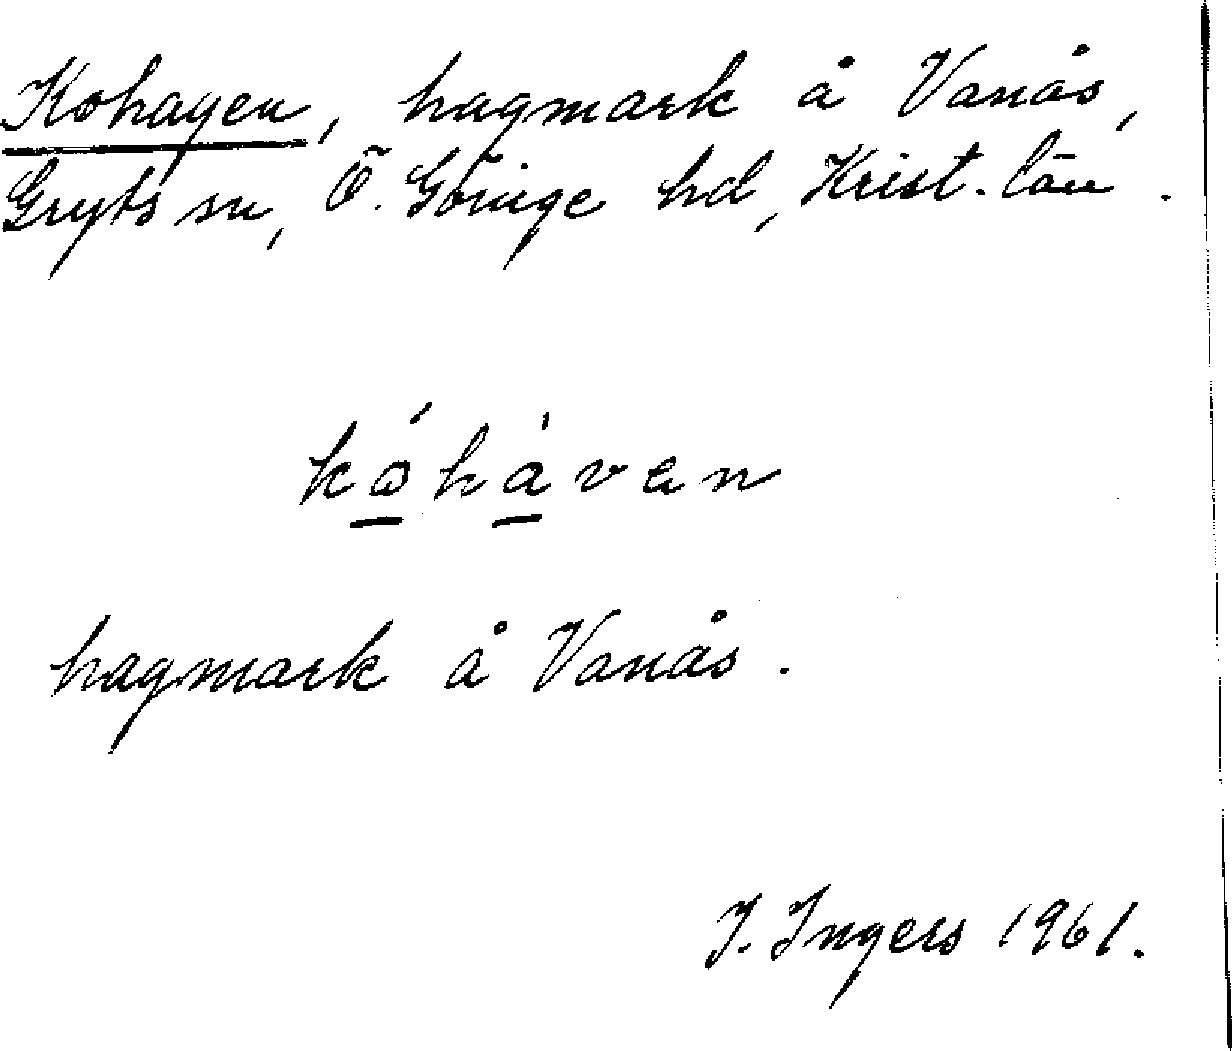 Kohagen, hagmark å Vanås,
Gryts sn, Ö. Göinge hd, Krist. län.
kóhàvan
hagmark å Vanås.
I. Ingers 1961.